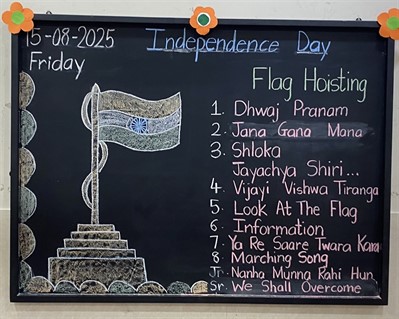 15-08-2025
Friday
Independence Day
Flag Hoisting
1. Dhwaj Pranam
2. Jana Gana Mana
3. Shloka
Jayachya Shiri...
4. Vijayi Vishwa Tiranga
5. Look At The Flag
6. Information
7. Ya Re Saare Twara Kara
8 Marching Song
Jr. Nanha Munna Rahi Hun
Sr. We Shall Overcome